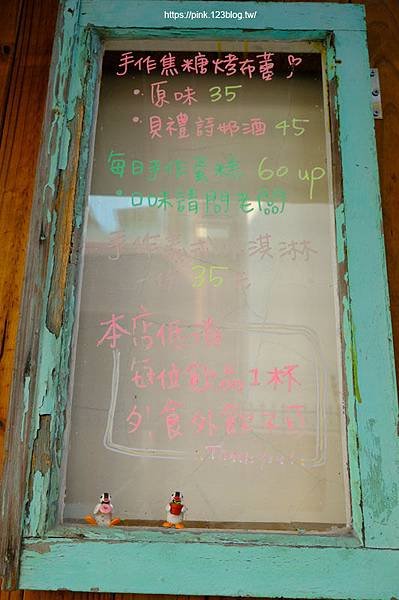 https://pink.123blog.tw/
手作焦糖烤布蕾
・原味 35
・貝禮詩奶酒 45
每日手作蛋糕 60 up
・口味請問老闆
手作 淇淋
35
本店低消
每位飲品1杯
外食外飲